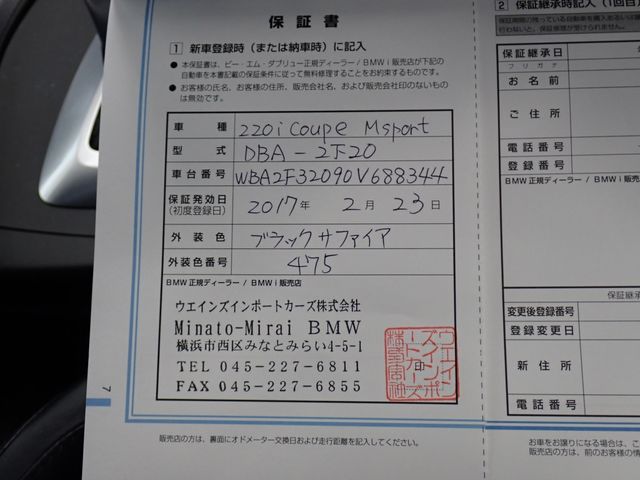 保証書
1 新車登録時（または納車時）に記入
● 本保証書は、ビー・エム・ダブリュー正規ディーラー / BMW i 販売店が下記の
自動車を本書記載の保証条件に従って無料修理することをお約束するものです。
● お客様の氏名、お客様の住所、販売会社名、および販売会社印のないもの
は無効です。
車種 220i Coupe Msport
型式 DBA-2F20
車台番号 WBA2F32090V688344
保証発効日 2017年 2月 23日
(初度登録日)
外装色 ブラックサファイア
外装色番号 475
BMW 正規ディーラー / BMW i 販売店
ウエインズインポートカーズ株式会社
Minato-Mirai BMW
横浜市西区みなとみらい4-5-1
TEL 045-227-6811
FAX 045-227-6855
ウエインズインポートカーズ株式会社印
販売店の方は、裏面にオドメーター交換日および走行距離を記入してください。
7
2 保証継承時記入（1回目
保証期間の残っている自動車を購入あるいは譲
行わないと、保証修理が受けられません。
保証継承日
フリガナ
お名前
ご住所
電話番号
登録番号
BMW 正規ディーラー / BMW i 販売
保証継承
変更後登録番号
登録変更日
新住所
電話番号
お車をお譲りになる場合は、こ
販売店の方は、前のお客様の情